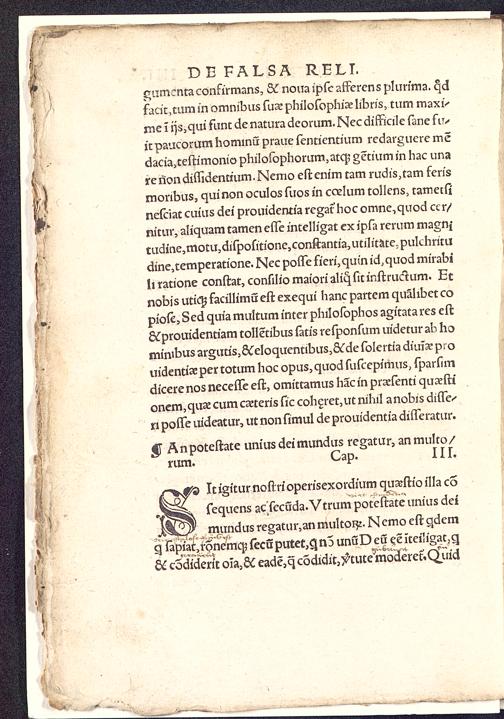 DE FALSA RELI.
gumenta confirmans, & noua ipse afferens plurima. q̃d
facit, tum in omnibus suæ philosophiæ libris, tum maxi/
me ĩ ijs, qui sunt de natura deorum. Nec difficile sane fu/
it paucorum hominũ praue sentientium redarguere mẽ
dacia, testimonio philosophorum, atq; gẽtium in hac una
re non dissidentium. Nemo est enim tam rudis, tam feris
moribus, qui non oculos suos in cœlum tollens, tametsi
nesciat cuius dei prouidentia regat̃ hoc omne, quod cer/
nitur, aliquam tamen esse intelligat ex ipsa rerum magni
tudine, motu, dispositione, constantia, utilitate, pulchritu
dine, temperatione. Nec posse fieri, quin id, quod mirabi
li ratione constat, consilio maiori aliq̃ sit instructum. Et
nobis utiq; facillimũ est exequi hanc partem quãlibet co
piose, Sed quia multum inter philosophos agitata res est
& prouidentiam tollẽtibus satis responsum uidetur ab ho
minibus argutis, & eloquentibus, & de solertia diuinæ pro
uidentiæ per totum hoc opus, quod suscepimus, sparsim
dicere nos necesse est, omittamus hãc in præsenti quæsti
onem, quæ cum cæteris sic cohęret, ut nihil a nobis disse/
ri posse uideatur, ut non simul de prouidentia disseratur.
¶ An potestate unius dei mundus regatur, an multo/
rum. Cap. III.
SIt igitur nostri operis exordium quæstio illa cõ
sequens ac secũda. Vtrum potestate unius dei
mundus regatur, an multoꝝ. Nemo est qdem
q sapiat, rõnemq; secũ putet, q nõ unũ Deũ eẽ ĩtelligat, q
& cõdiderit oĩa, & eadẽ, q̃ cõdidit, ṽtute moderet̃. Quid